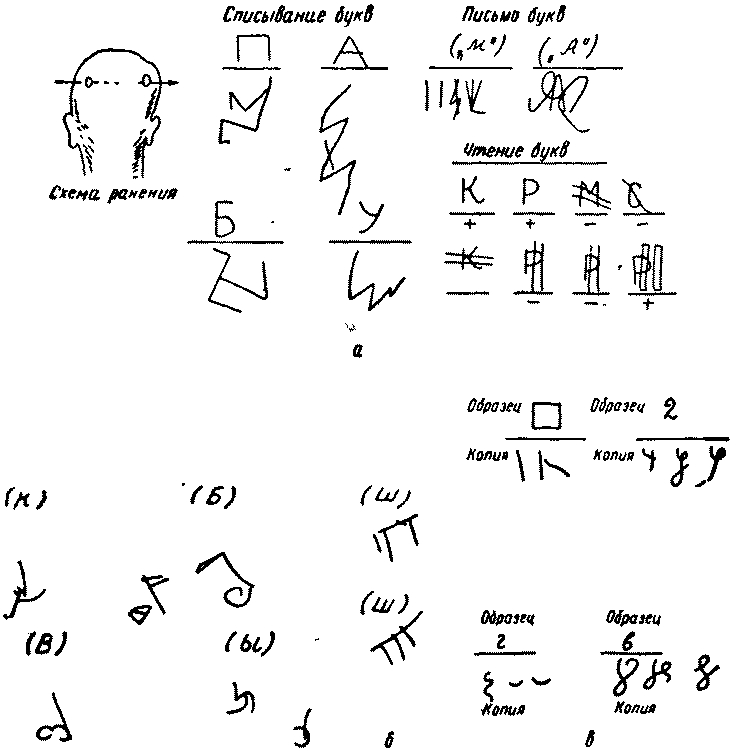 Списывание букв
П А
Б У
Схема ранения
Письмо букв
("м") ("А")
Чтение букв
К Р М С
+ + - -
К Р Р Р
- - +
а
Образец Образец 2
Копия Копия
(К) (Б) (Ш)
(Ш)
(В) (Ы)
б
Образец Образец
г в
Копия Копия
в